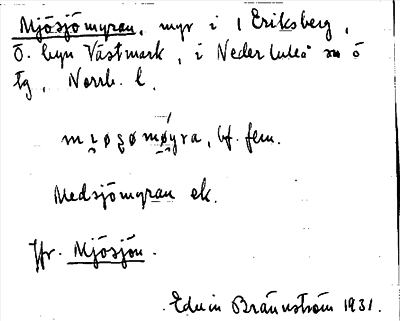 Mjösjömyran, myr i 1 Eriksberg,
Ö. byn Västmark, i Nederluleå sn ö
tg, Norrb. l.
bf. fem.
Medsjömyran ek.
Jfr. Mjösjön.
Edwin Brännström 1931.